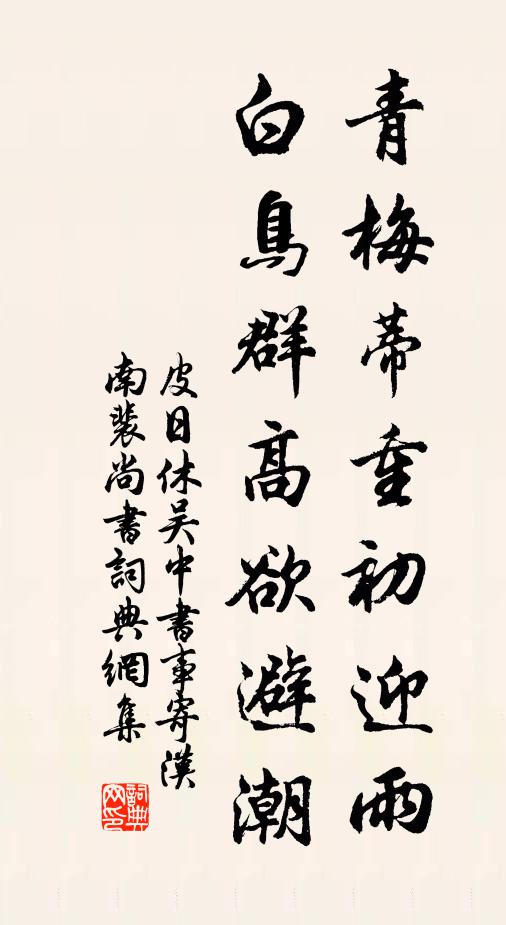 青梅蒂重初迎雨
白鳥群高欲避潮
皮日休吴中書事寄漢
南裴尚書詞典網集
詞典
网印